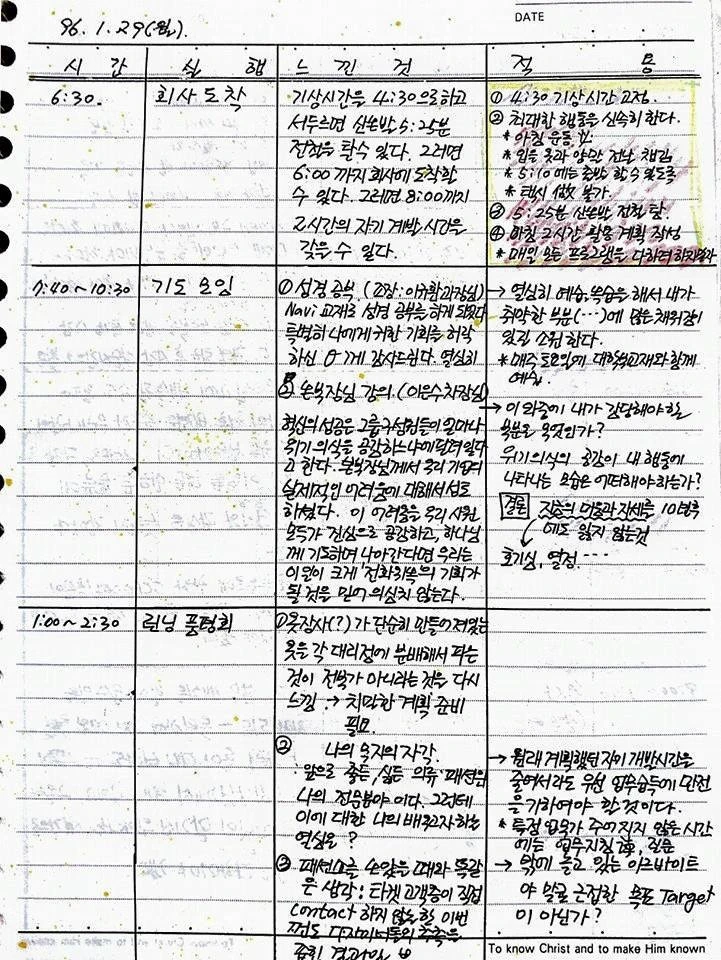 DATE
96. 1. 29(월).
시 간 실 행 느 낀 것 적 용
6:30. 회사 도착
기상시간을 4:30으로하고
서두르면 산본발 5:25분
전철을 탈수 있다. 그러면
6:00까지 회사에 도착할
수 있다. 그러면 8:00까지
2시간의 자기 계발 시간을
갖을 수 있다.
① 4:30 기상시간 고정.
② 최대한 행동을 신속히 한다.
* 아침 운동
* 입을 옷과 양말 전날 챙김
* 5:10에는 출발 할 수 있도록
* 택시 불가.
③ 5:25분 산본발 전철 탐.
④ 아침 2시간 활용 계획 작성
* 매일 모든 프로그램을 다하려 하지말자
7:40~10:30 기도 모임
① 성경 공부. (조장:
Navi 교재로 성경 공부를 하게 되었다
특별히 나에게 귀한 기회를 허락
하신 께 감사드린다. 열심히
② 본부장님 강의. (이은수차장님)
혁신의 성공은 그룹구성원들이 얼마나
위기의식을 공감하느냐에 달려있다
고 한다. 본부장님께서 우리 기업의
실제적인 어려움에 대해서 설토
하셨다. 이 어려움을 우리 사원
모두가 진심으로 공감하고, 하나님
께 기도하며 나아간다면 우리는
이일이 크게 전화위복의 기회가
될 것을 믿어 의심치 않는다.
→ 열심히 예습.복습을 해서 내가
취약한 부분(…)에 많은 채워짐이
있길 소원 한다.
* 매주 토요일에 대학부교재와 함께
예습.
→ 이 와중에 내가 감당해야 할
몫은 무엇인가?
위기의식의 공감이 내 행동에
나타나는 모습은 어떠해야 하는가?
결론 지금의 마음과 자세를 10년후
에도 잃지 않는것
호기심, 열정 …
1:00~2:30 런닝 품평회
① 옷장사(?)가 단순히 만들어져있는
옷을 각 대리점에 분배해서 파는
것이 전부가 아니라는 것을 다시
느낌 → 치밀한 계획 준비
필요.
② 나의 무지의 자각.
: 앞으로 좋든, 싫든 의류·패션은
나의 전문분야 이다. 그런데
이에 대한 나의 배우고자 하는
열심은?
③ 때와 똑같
은 생각: 타겟 고객층이 직접
contact 하지 않도록 이번
→ 원래 계획했던 자기 개발시간을
줄여서라도 우선 업무습득에 만전
을 기하여야 할 것이다.
* 특정 업무가 주어지지 않은 시간
에는 업무지침 질문
→ 밖에 놀고 있는 아르바이트
야 말로 근접한 목표 Target
이 아닌가?
To know Christ and to make Him known